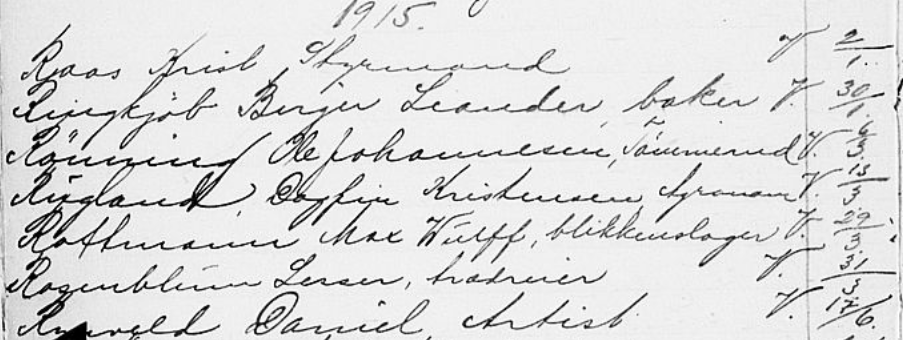 1915.
Raas Krist, Styrmand V. 2/1.
Ringkjöb Birger Leander, baker V. 30/1.
Rönning Ole Johannesen, Tömmermd V. 6/3.
Rugland, Dagfin Kristensen, Agronom V. 13/3
Rottmann Max Wulff, blikkenslager V. 29/3.
Rosenblum Lesser, handreisr V. 31/3
Daniel, Artist V. 17/6.